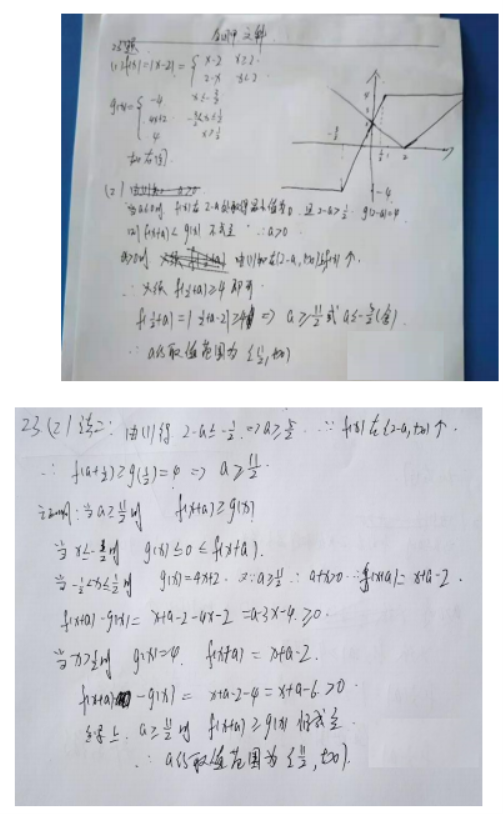 23题
(1) f(x)=|x-2|= { x-2 x≥2
2-x x<2
g(x)= { -4 x≤-3/2
4x+2 -3/2<x≤1/2
4 x>1/2
如右图.
4
-3/2 1/2 2
-4
(2)
当a≤0时 f(x)在2-a处取得最小值为0. 且2-a>1/2. g(2-a)=4
f(x+a)≥g(x) 不成立 ∴a>0
a>0时 由(1)知在[2-a,+∞)上f(x)↑.
∴ 只须 f(1/2+a)≥4 即可
f(1/2+a)=|1/2+a-2|≥4 => a≥11/2 或 a≤-5/2(舍)
∴ a的取值范围为 [11/2,+∞)
23 (2) 法二: 由(1)得 2-a≤-1/2 => a≥5/2 ∵ f(x)在[2-a,+∞)↑.
∴ f(a+1/2)≥g(1/2)=4 => a≥11/2.
证明: 当a≥11/2时 f(x+a)≥g(x)
当x≤-1/2时 g(x)≤0≤f(x+a).
当-1/2<x≤1/2时 g(x)=4x+2. 又∵a≥11/2 ∴a+x>0 ∴f(x+a)=x+a-2.
f(x+a)-g(x)=x+a-2-4x-2=a-3x-4≥0.
当x>1/2时 g(x)=4. f(x+a)=x+a-2.
f(x+a)-g(x)=x+a-2-4=x+a-6>0.
综上. a≥11/2时 f(x+a)≥g(x) 恒成立.
∴ a的取值范围为 [11/2,+∞).